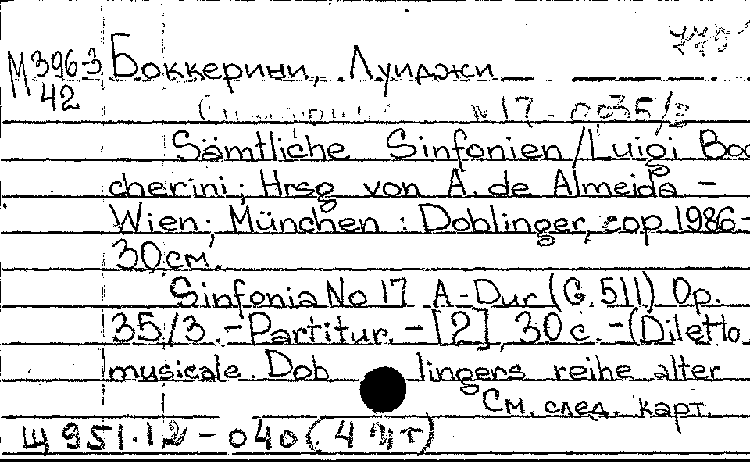 М396-3 Боккерини, Луиджи
42
№17 - ор35/3
Sämtliche Sinfonien/Luigi Boc
cherini; Hrsg von A. de Almeida -
Wien; München : Doblinger, cop. 1986-
30см.
Sinfonia No 17 A-Dur (G. 511) Op.
35/3. - Partitur. - [2], 30 с. - (Diletto
musicale. Dob lingers reihe alter
См. след. карт.
Щ 951.12 - 040 (.4